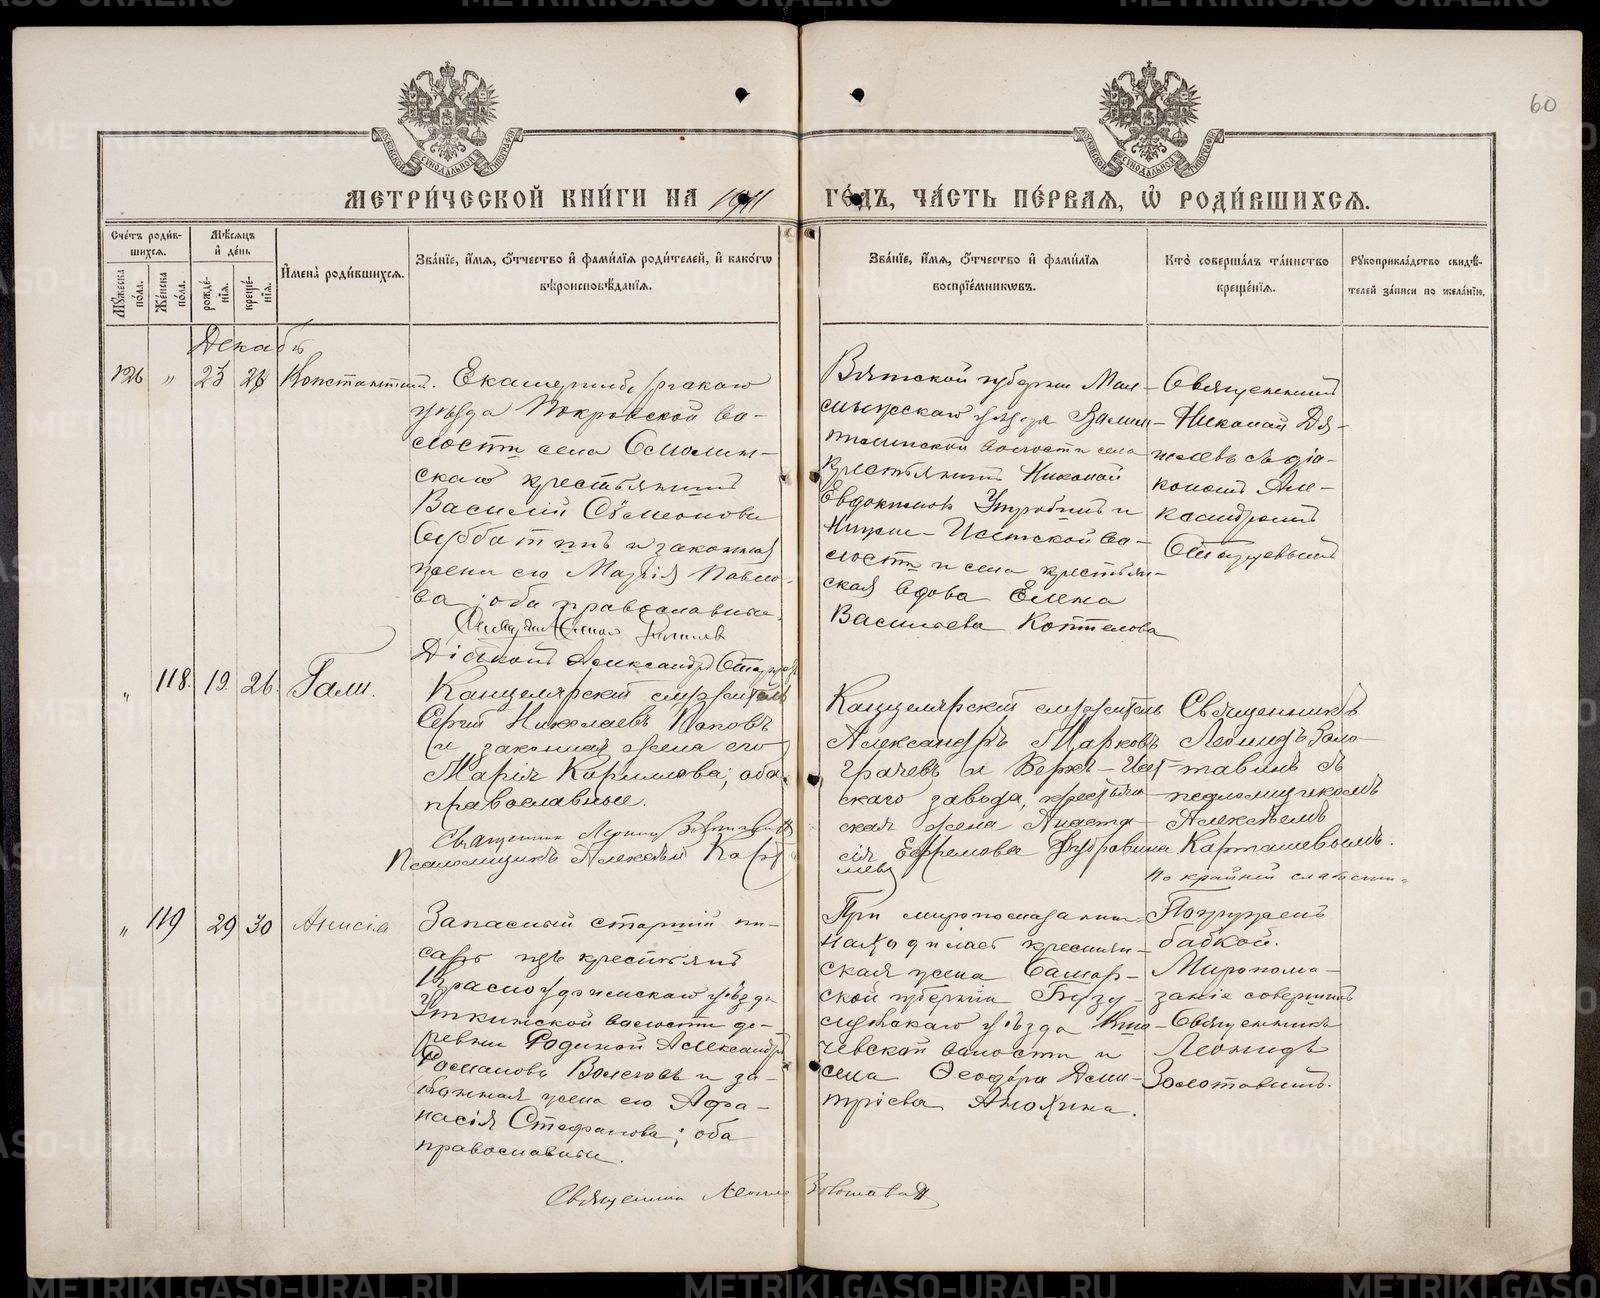 60
МЕТРИ́ЧЕСКОЙ КНИ́ГИ НА 1911 ГО́ДЪ, ЧА́СТЬ ПЕ́РВАЯ, Ѡ҆ РОДИ́ВШИХСЯ.
Сче́тъ роди́в-
шихся.
Му́жеска по́ла.
Же́нска по́ла.
Мѣ́сяцъ
и҆ де́нь
рожде́-
нїя.
креще́-
нїя.
И҆мена̀ роди́вшихся.
Зва́нїе, и҆́мя, ѻ҆́тчество и҆ фами́лїя роди́телей, и҆ како́гѡ
вѣроисповѣ́данїя.
Зва́нїе, и҆́мя, ѻ҆́тчество и҆ фами́лїя
воспрїе́мникѡвъ.
Кто̀ соверша́лъ та́инство
креще́нїя.
Рꙋкоприкла́дство свидѣ́-
телей за́писи по жела́нїю.
Декабь
126 „ 23 26 Константинъ.
Екатеринбургскаго
уѣзда Покровской во-
лости села Смолин-
скаго крестьянинъ
Василій Сѵмеоновъ
и законная
жена его Марія Павло-
ва; оба православные.
Діаконъ Александръ
Вятской губерніи Мал-
мыжскаго уѣзда
волости села
крестьянинъ Николай
Евдокимовъ и
Нижне-Исетской во-
лости и села крестьян-
ская вдова Елена
Васильева Коттелова
Священникъ
Николай Дя-
гилевъ съ діа-
кономъ Але-
ксандромъ
„ 118. 19. 26. Галли.
Канцелярскій служитель
Сергій Николаевъ Поповъ
и законная жена его
Марія Кириллова; оба
православные.
Священникъ Леонидъ Золотавинъ
Псаломщикъ Алексѣй Карта
шевъ
Канцелярскій служитель
Александръ Марковъ
Грачевъ и Верхъ-Исет-
скаго завода, крестьян-
ская жена Анаста-
сія Ефремова Дубровина
Священникъ
Леонидъ Золо-
тавинъ съ
псаломщикомъ
Алексѣемъ
Карташевымъ.
„ 119 29 30 Анисія
Запасный старшій пи-
сарь изъ крестьянъ
Красноуфимскаго уѣзда
Уткинской волости де-
ревни Родиной Александръ
Романовъ Волеговъ и за-
конная жена его Афа-
насія Стефанова; оба
православные.
Священникъ Леонидъ Золотавинъ
При миропомазаніи
находилась крестьян-
ская жена Самар-
ской губерніи Бузу-
лукскаго уѣзда
волости и
села Ѳеодора Дми-
тріева Анохина.
По крайней слабости
Погруженъ
бабкой.
Миропома-
заніе совершилъ
Священникъ
Леонидъ
Золотавинъ.
METRIKI.GASO-URAL.RU